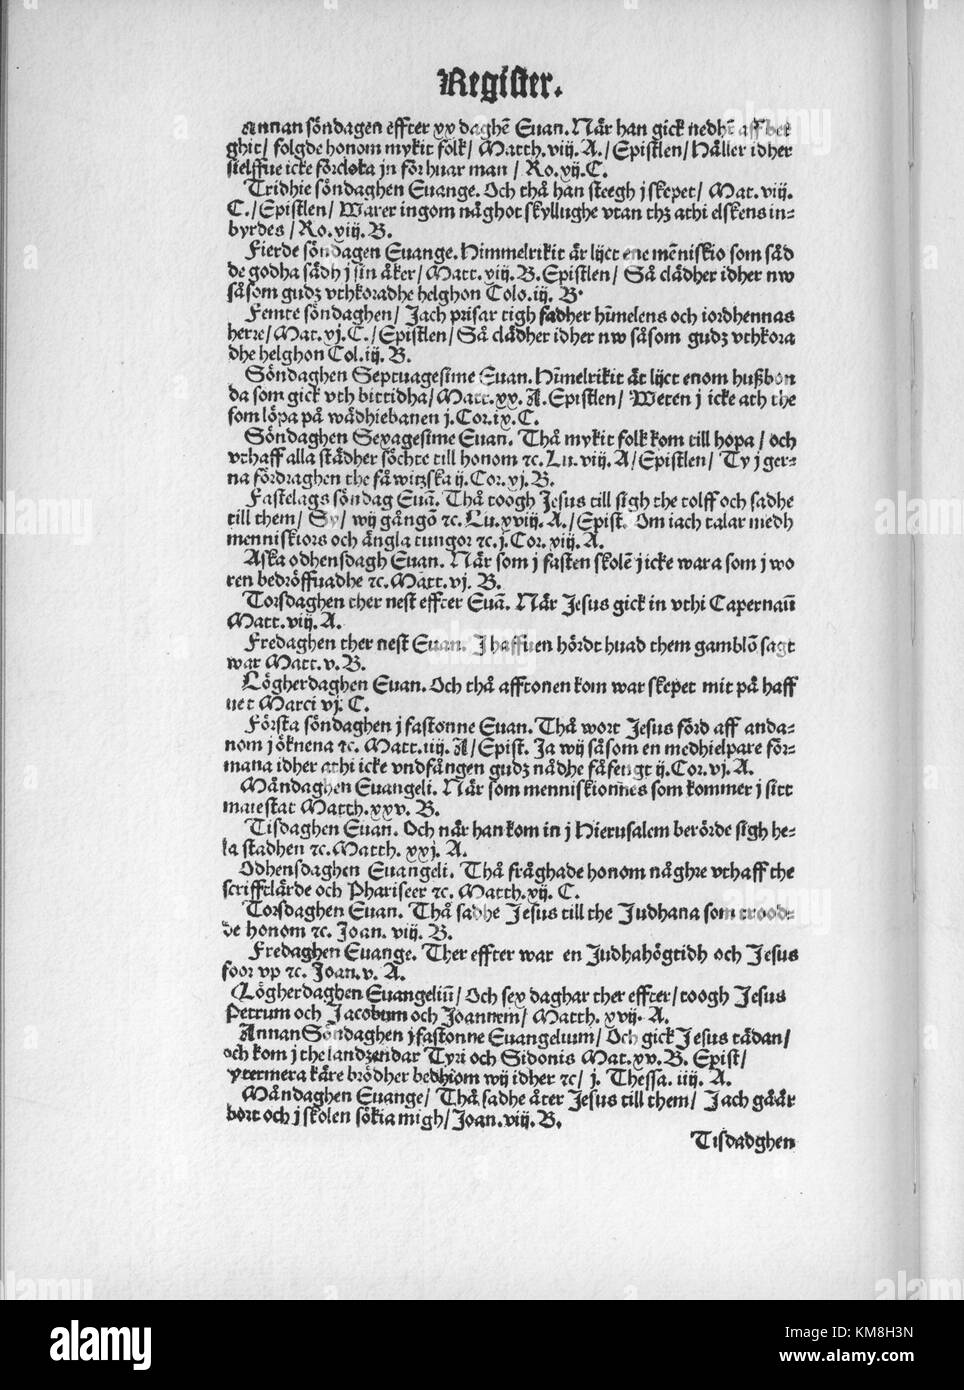 Register.
Annan söndagen effter xx daghē Euan. När han gick nedhr̄ aff ber
ghit/ folgde honom mykit folk/ Matth. viij. A./ Epistlen/ Håller idher
sielffue icke för clota jn för huar man/ Ro. xij. C.
Tridhie söndaghen Euange. Och thå han steegh j skepet/ Mat. viij.
C./ Epistlen/ Warer ingom någhot skyllughe vtan thz athi elskens in-
byrdes/ Ro. xiij. B.
Fierde söndagen Euange. Himmelrikit är lijct ene mēniskio som såd
de godha sädh j sin åker/ Matt. xiij. B. Epistlen/ Så clädher idher nw
såsom gudz vthkoradhe helghon Colo. iij. B.
Femte söndaghen/ Jach prisar tigh fadher hīmelens och iordhennas
herre/ Mat. xj. C./ Epistlen/ Så clädher idher nw såsom gudz vthkora
dhe helghon Col. iij. B.
Söndaghen Septuagesime Euan. Hīmelrikit är lijct enom hußbon
da som gick vth bittidha/ Matt. xx. A. Epistlen/ Weten j icke ath the
som löpa på wädhiebanen j. Cor. ix. C.
Söndaghen Sexagesime Euan. Thå mykit folk kom till hopa/ och
vthaff alla städher söchte till honom ꝛc. Lu. viij. A/ Epistlen/ Ty j ger-
na fördraghen the fåwitzska ij. Cor. xj. B.
Fastelags söndag Euā. Thå toogh Jesus till sigh the tolff och sadhe
till them/ Sy/ wij gångō ꝛc. Lu. xviij. A./ Epist. Om iach talar medh
menniskiors och ängla tungor ꝛc. j. Cor. xiij. A.
Aska odhensdagh Euan. När som j fasten skolē j icke wara som j wo
ren bedröffuadhe ꝛc. Matt. vj. B.
Torsdaghen ther nest effter Euā. När Jesus gick in vthi Capernaū
Matt. viij. A.
Fredaghen ther nest Euan. J haffuen hördt huad them gamblō sagt
war Matt. v. B.
Lögherdaghen Euan. Och thå afftonen kom war skepet mit på haff
uet Marci vj. C.
Första söndaghen j fastonne Euan. Thå wort Jesus förd aff anda-
nom j öknena ꝛc. Matt. iiij. A/ Epist. Ja wij såsom en medhielpare för-
mana idher athi icke vndfången gudz nådhe fåfengt ij. Cor. vj. A.
Måndaghen Euangeli. När som menniskionnes som kommer j sitt
maiestat Matth. xxv. B.
Tisdaghen Euan. Och när han kom in j Hierusalem berörde sigh he-
la stadhen ꝛc. Matth. xxj. A.
Odhensdaghen Euangeli. Thå fråghade honom någhre vthaff the
scrifftlärde och Phariseer ꝛc. Matth. xij. C.
Torsdaghen Euan. Thå sadhe Jesus till the Judhana som trood-
de honom ꝛc. Joan. viij. B.
Fredaghen Euange. Ther effter war en Judhahögtidh och Jesus
foor vp ꝛc. Joan. v. A.
Lögherdaghen Euangeliū/ Och sex daghar ther effter/ toogh Jesus
Petrum och Jacobum och Joannem/ Matth. xvij. A.
Annan Söndaghen j fastonne Euangelium/ Och gick Jesus tädan/
och kom j the landzendar Tyri och Sidonis Mat. xv. B. Epist/
ytermera käre brödher bedhiom wij idher ꝛc/ j. Thessa. iiij. A.
Måndaghen Euange/ Thå sadhe åter Jesus till them/ Jach gåår
bort och j skolen sökia migh/ Joan. viij. B.
Tisdadghen
a
alamy
alamy
Image ID: KM8H3N
www.alamy.com